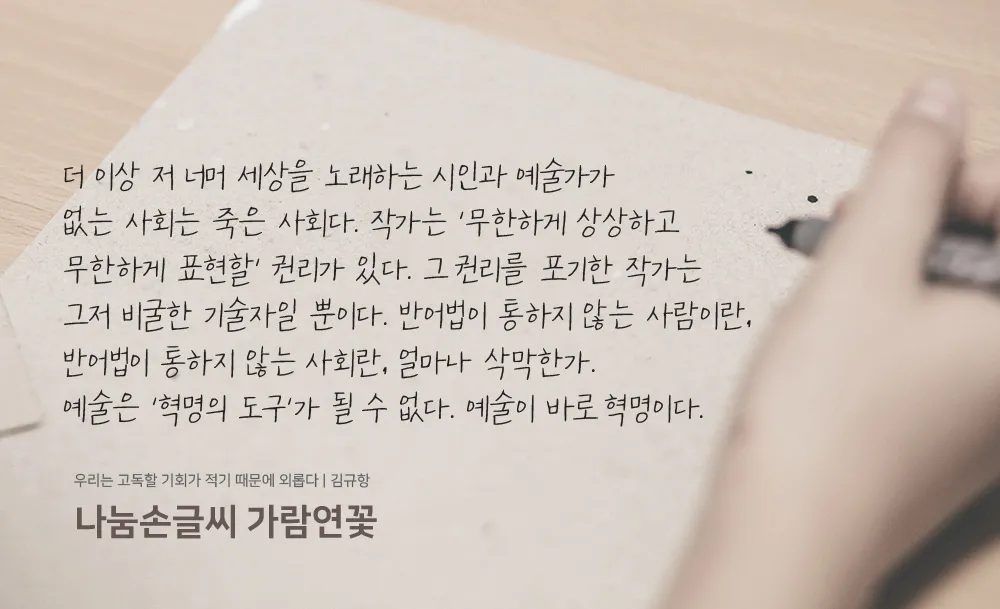 더 이상 저 너머 세상을 노래하는 시인과 예술가가
없는 사회는 죽은 사회다. 작가는 '무한하게 상상하고
무한하게 표현할' 권리가 있다. 그 권리를 포기한 작가는
그저 비굴한 기술자일 뿐이다. 반어법이 통하지 않는 사람이란,
반어법이 통하지 않는 사회란, 얼마나 삭막한가.
예술은 '혁명의 도구'가 될 수 없다. 예술이 바로 혁명이다.
우리는 고독할 기회가 적기 때문에 외롭다 | 김규항
나눔손글씨 가람연꽃